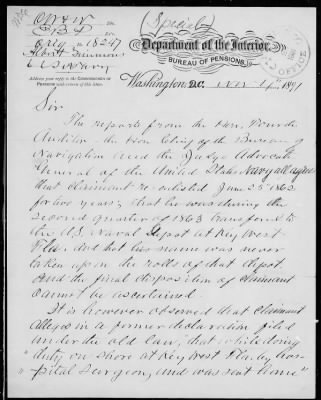 (Special)
O W & N Div.
G B F Ex'r.
Orig No. 18247
Albert Simmons
U.S. Navy
Department of the Interior,
BUREAU OF PENSIONS,
Address your reply to the COMMISSIONER OF
PENSIONS with return of this letter.
Washington, D.C. 1891
Sir
The reports from the Hon. Fourth
Auditor - the Hon Chief of the Bureau of
Navigation and the Judge Advocate
General of the United States Navy all agree
that claimant re-enlisted June 25" 1862
for two years; that he was during the
second quarter of 1863 transferred to
the U.S. Naval Depot at Key West
Fla. and that his name was never
taken up on the rolls of that depot
and the final disposition of claimant
cannot be ascertained.
It is however observed that claimant
alleges in a former declaration filed
under the old law, that while doing
"duty on shore at Key West Fla. by hos-
"pital surgeon, and was sent home"